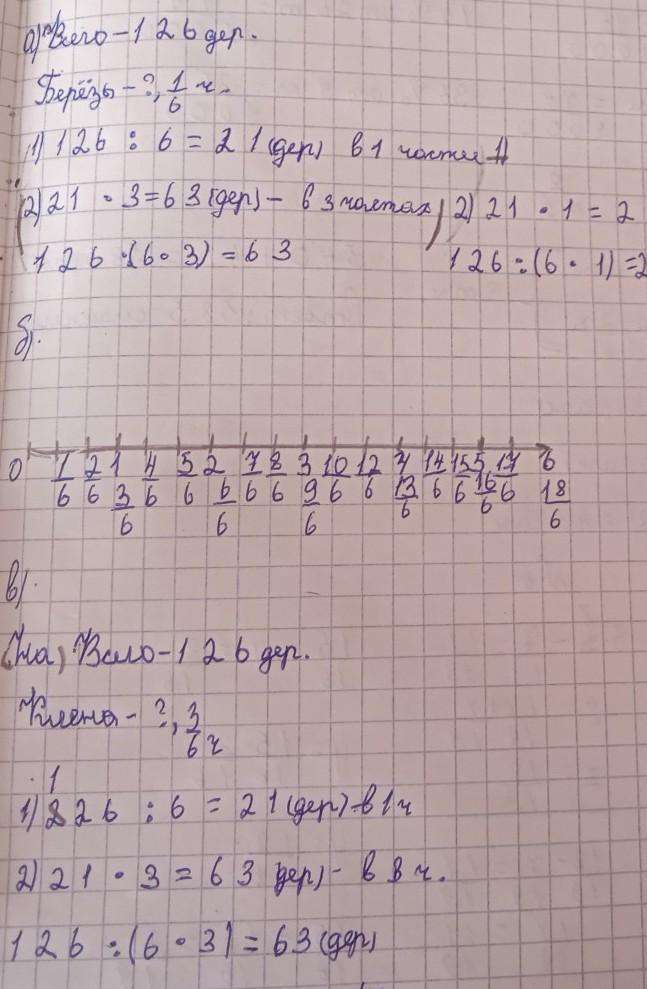 а) Всего - 126 дер.
Берёзы - ?, 1/6 ч.
1) 126 : 6 = 21 (дер) в 1 части
(2) 21 · 3 = 63 (дер) - в 3 частях) 2) 21 · 1 = 2
126 : (6 · 3) = 63 126 : (6 · 1) = 2
б).
0 1/6 2/6 1 4/6 5/6 2 7/6 8/6 3 10/6 12/6 4 14/6 15/6 5 17/6 6
3/6 6/6 9/6 13/6 16/6 18/6
в).
(На) Всего - 126 дер.
Клёна - ?, 3/6 ч
1) 126 : 6 = 21 (дер) - в 1 ч
2) 21 · 3 = 63 (дер) - в 3 ч.
126 : (6 · 3) = 63 (дер)